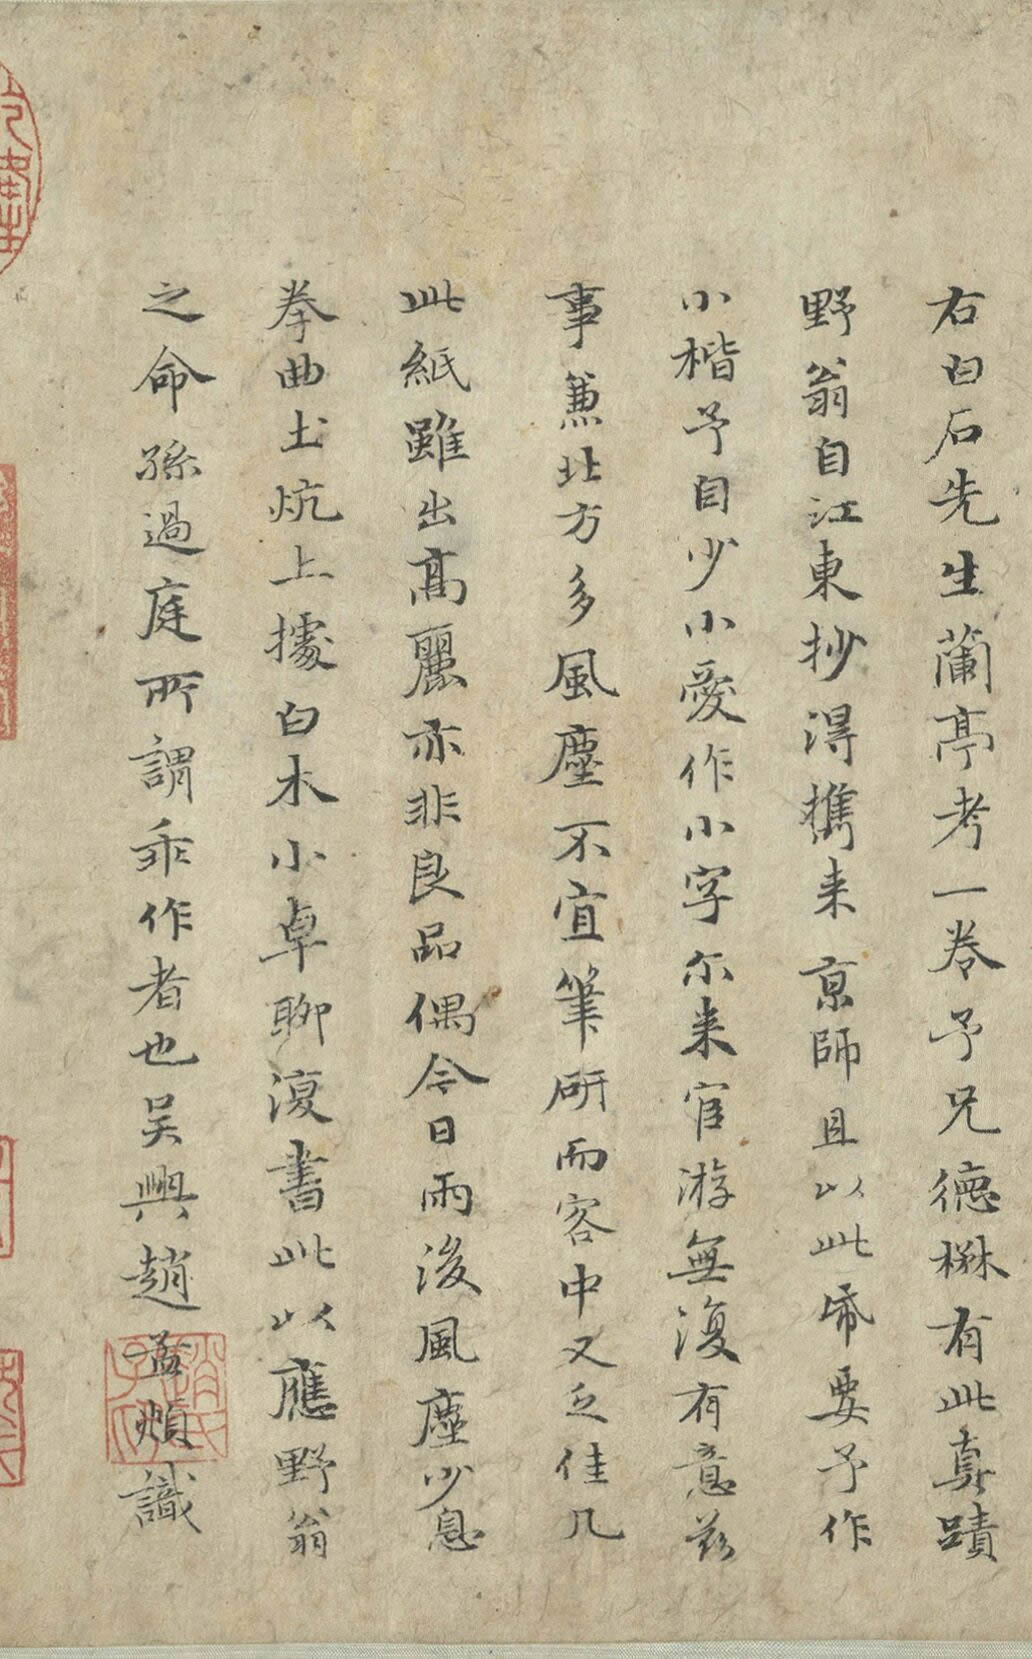 右白石先生蘭亭考一卷予兄德楙有此真蹟
野翁自江東抄得攜来京師且以此帋要予作
小楷予自少小愛作小字尓来宦游無復有意兹
事蒹北方多風塵不宜筆研而客中又乏佳几
此紙雖出高麗亦非良品偶今日雨後風塵少息
拳曲土炕上據白木小卓聊復書此以應野翁
之命孫過庭所謂乖作者也吴興趙孟頫識
趙氏子昂